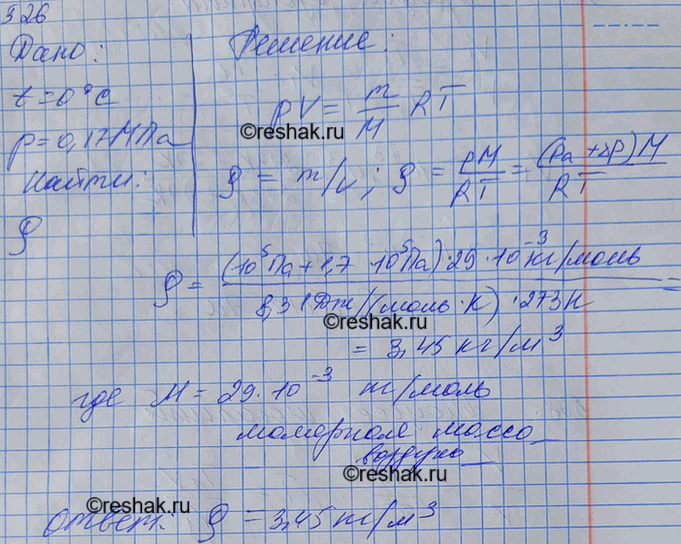 326
Дано:
Решение:
t = 0°C
p = 0,17 МПа
Найти:
ρ
pV = m/M RT
©reshak.ru
ρ = m/V; ρ = pM/RT = (Pa + Δp) M/RT
ρ = (10⁵Па + 1,7 · 10⁵Па) · 29 · 10⁻³ кг/моль / 8,31 Дж/(моль · К) · 273К =
©reshak.ru
= 3,45 кг/м³
где M = 29 · 10⁻³ кг/моль
молярная масса
воздуха
©reshak.ru
©reshak.ru
Ответ: ρ = 3,45 кг/м³